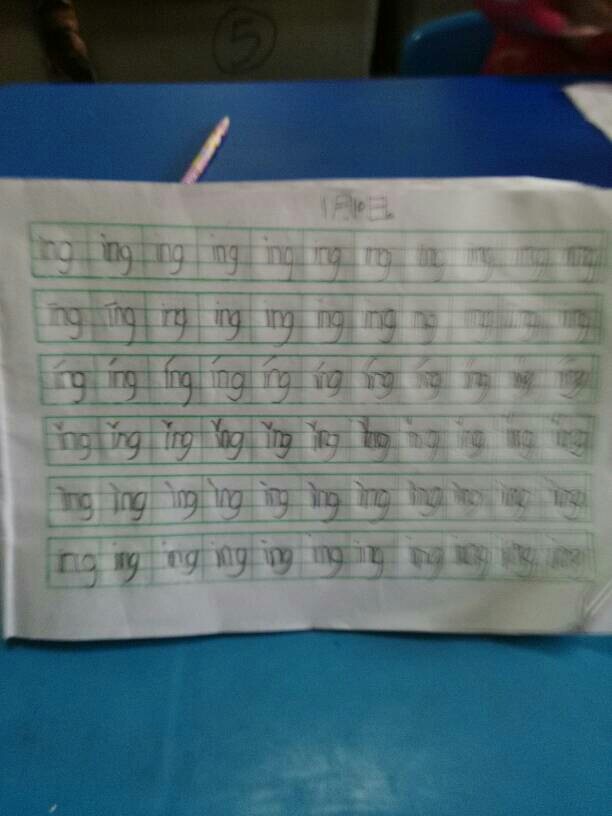 ⑤
1月10日
ing ing ing ing ing ing ing ing ing ing ing
īng īng ing ing ing ing ing ing ing ing ing
íng íng íng íng íng íng íng íng íng íng íng
ǐng ǐng ǐng ǐng ǐng ǐng ǐng ǐng ǐng ǐng ǐng
ìng ìng ìng ìng ìng ìng ìng ìng ìng ìng ìng
ing ing ing ing ing ing ing ing ing ing ing